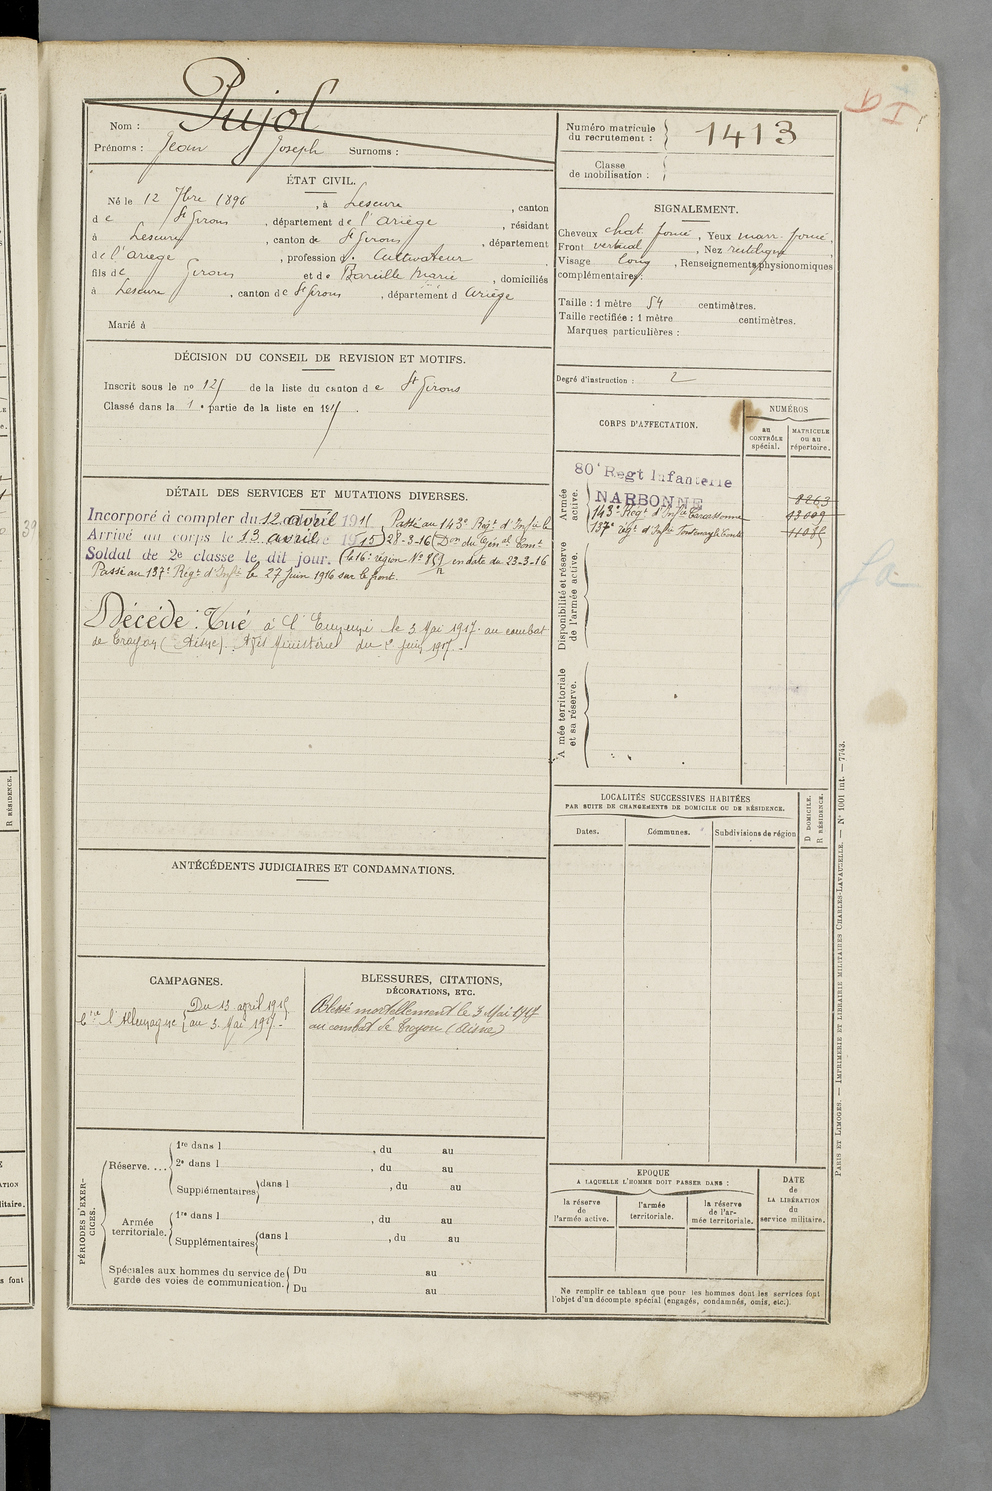 Nom : Pujol
Prénoms : Jean Joseph Surnoms :
ÉTAT CIVIL.
Né le 12 7bre 1896, à Lescure, canton
de St Girons, département de l'Ariège, résidant
à Lescure, canton de St Girons, département
de l'Ariège, profession d. Cultivateur
fils de Girons et de Bareille Marie, domiciliés
à Lescure, canton de St Girons, département d Ariège
Marié à
DÉCISION DU CONSEIL DE REVISION ET MOTIFS.
Inscrit sous le no de la liste du canton de St Girons
Classé dans la 1e partie de la liste en 191
DÉTAIL DES SERVICES ET MUTATIONS DIVERSES.
Incorporé à compter du 12 avril 191 Passé au 143e Régt d'Infie le
Arrivé au corps le 13 avril 1915 28-3-16 (Don du Génal Comt
Soldat de 2e classe le dit jour. la 16e région en date du 23-3-16
Passé au 137e Régt d'Infie le 27 Juin 1916 sur le front.
Décédé. Tué à l'Ennemi le 3 Mai 1917 au combat
de Troyon (Aisne). Avis Ministériel du Juin 1917.
ANTÉCÉDENTS JUDICIAIRES ET CONDAMNATIONS.
CAMPAGNES.
Ctre l'Allemagne { Du 13 avril 1915
au 3 Mai 1917
BLESSURES, CITATIONS,
DÉCORATIONS, ETC.
Blessé mortellement le 3 Mai 1917
au combat de Troyon (Aisne)
PÉRIODES D'EXERCICES.
Réserve....
1re dans l , du au
2e dans l , du au
Supplémentaires dans l , du au
Armée
territoriale.
1re dans l , du au
Supplémentaires dans l , du au
Spéciales aux hommes du service de
garde des voies de communication.
Du au
Du au
Numéro matricule
du recrutement : 1413
Classe
de mobilisation :
SIGNALEMENT.
Cheveux chat. foncé, Yeux marr. foncé,
Front vertical, Nez rectiligne
Visage long, Renseignements physionomiques
complémentaires :
Taille : 1 mètre 54 centimètres.
Taille rectifiée : 1 mètre centimètres.
Marques particulières :
Degré d'instruction : 2
CORPS D'AFFECTATION.
NUMÉROS
au
CONTRÔLE
spécial.
MATRICULE
ou au
répertoire.
Armée
active.
80e Regt Infanterie
NARBONNE 8263
143e Régt d'Infie Carcassonne 13009
137e régt d'Infie Fontenay le Comte
Disponibilité et réserve
de l'armée active.
A mée territoriale
et sa réserve.
LOCALITÉS SUCCESSIVES HABITÉES
PAR SUITE DE CHANGEMENTS DE DOMICILE OU DE RÉSIDENCE.
Dates.
Communes.
Subdivisions de région
D DOMICILE.
R RÉSIDENCE.
EPOQUE
A LAQUELLE L'HOMME DOIT PASSER DANS :
la réserve
de
l'armée active.
l'armée
territoriale.
la réserve
de l'ar-
mée territoriale.
DATE
de
LA LIBÉRATION
du
service militaire.
Ne remplir ce tableau que pour les hommes dont les services font
l'objet d'un décompte spécial (engagés, condamnés, omis, etc.).
PARIS ET LIMOGES. — IMPRIMERIE ET LIBRAIRIE MILITAIRES CHARLES-LAVAUZELLE. — No 1001 int. — 7743.
R RÉSIDENCE.
s font